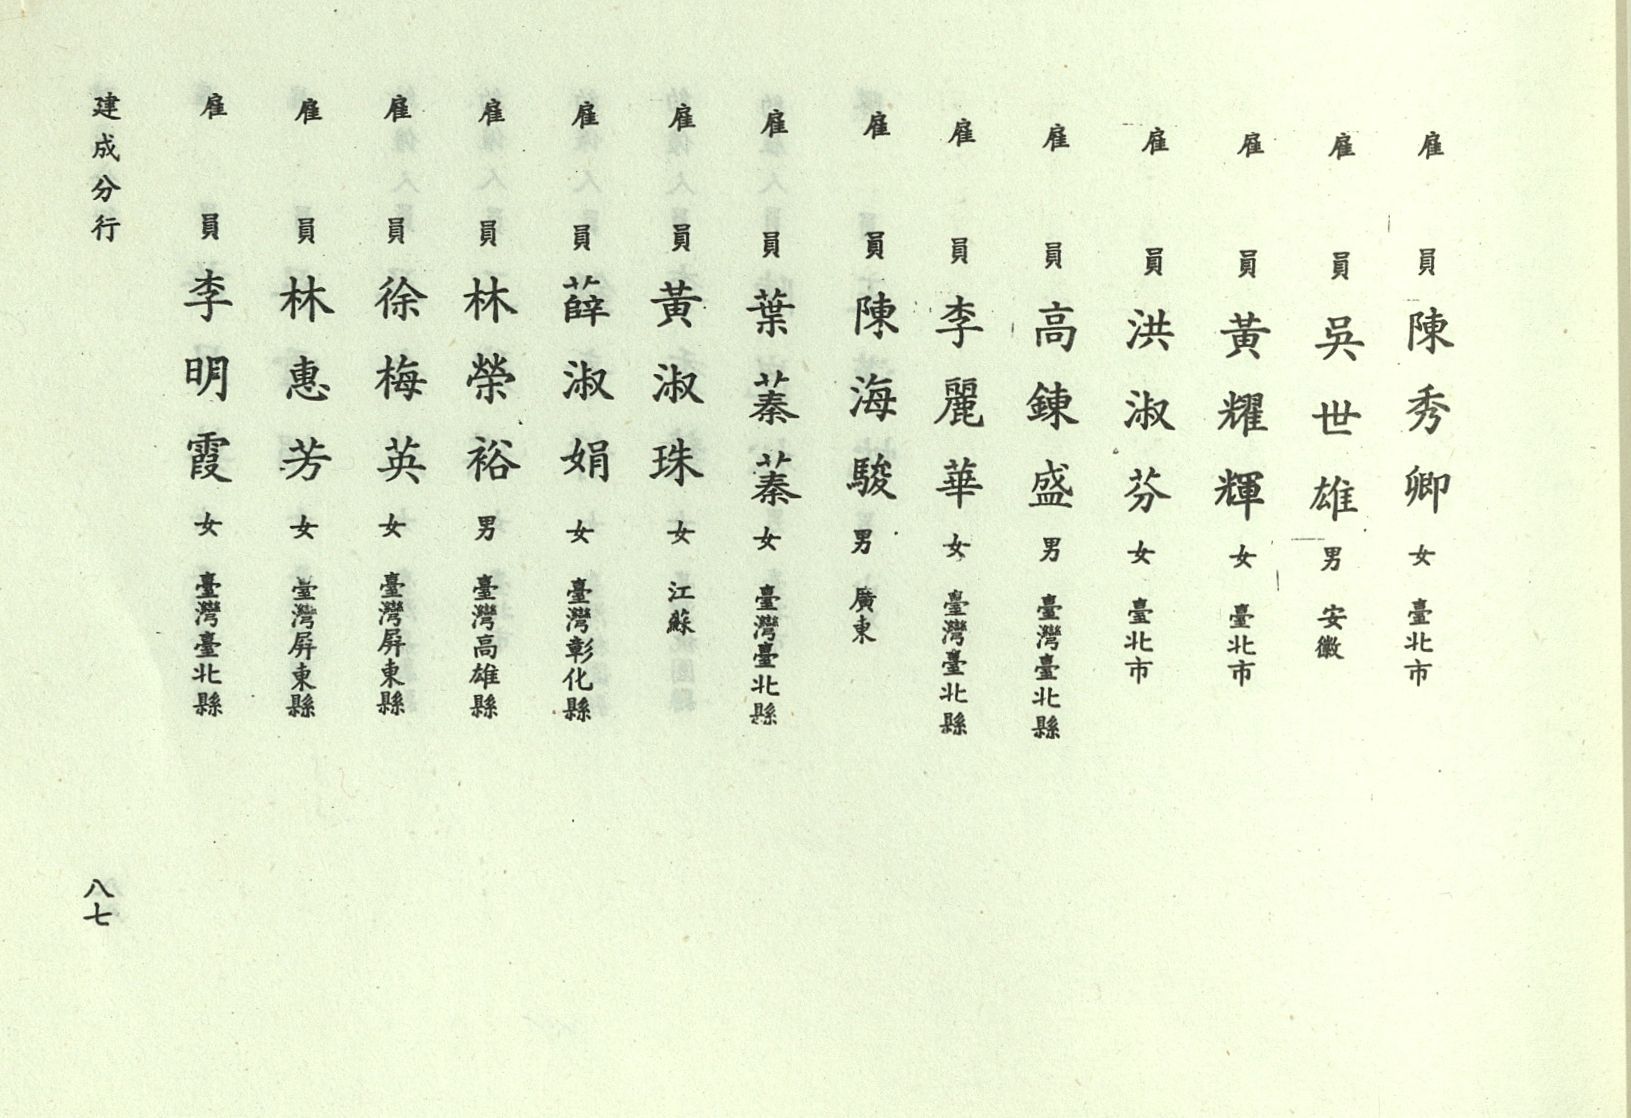 雇員陳秀卿女臺北市
雇員吳世雄男安徽
雇員黃耀輝女臺北市
雇員洪淑芬女臺北市
雇員高鍊盛男臺灣臺北縣
雇員李麗華女臺灣臺北縣
雇員陳海駿男廣東
雇員葉蓁蓁女臺灣臺北縣
雇員黃淑珠女江蘇
雇員薛淑娟女臺灣彰化縣
雇員林榮裕男臺灣高雄縣
雇員徐梅英女臺灣屏東縣
雇員林惠芳女臺灣屏東縣
雇員李明霞女臺灣臺北縣
建成分行
八七